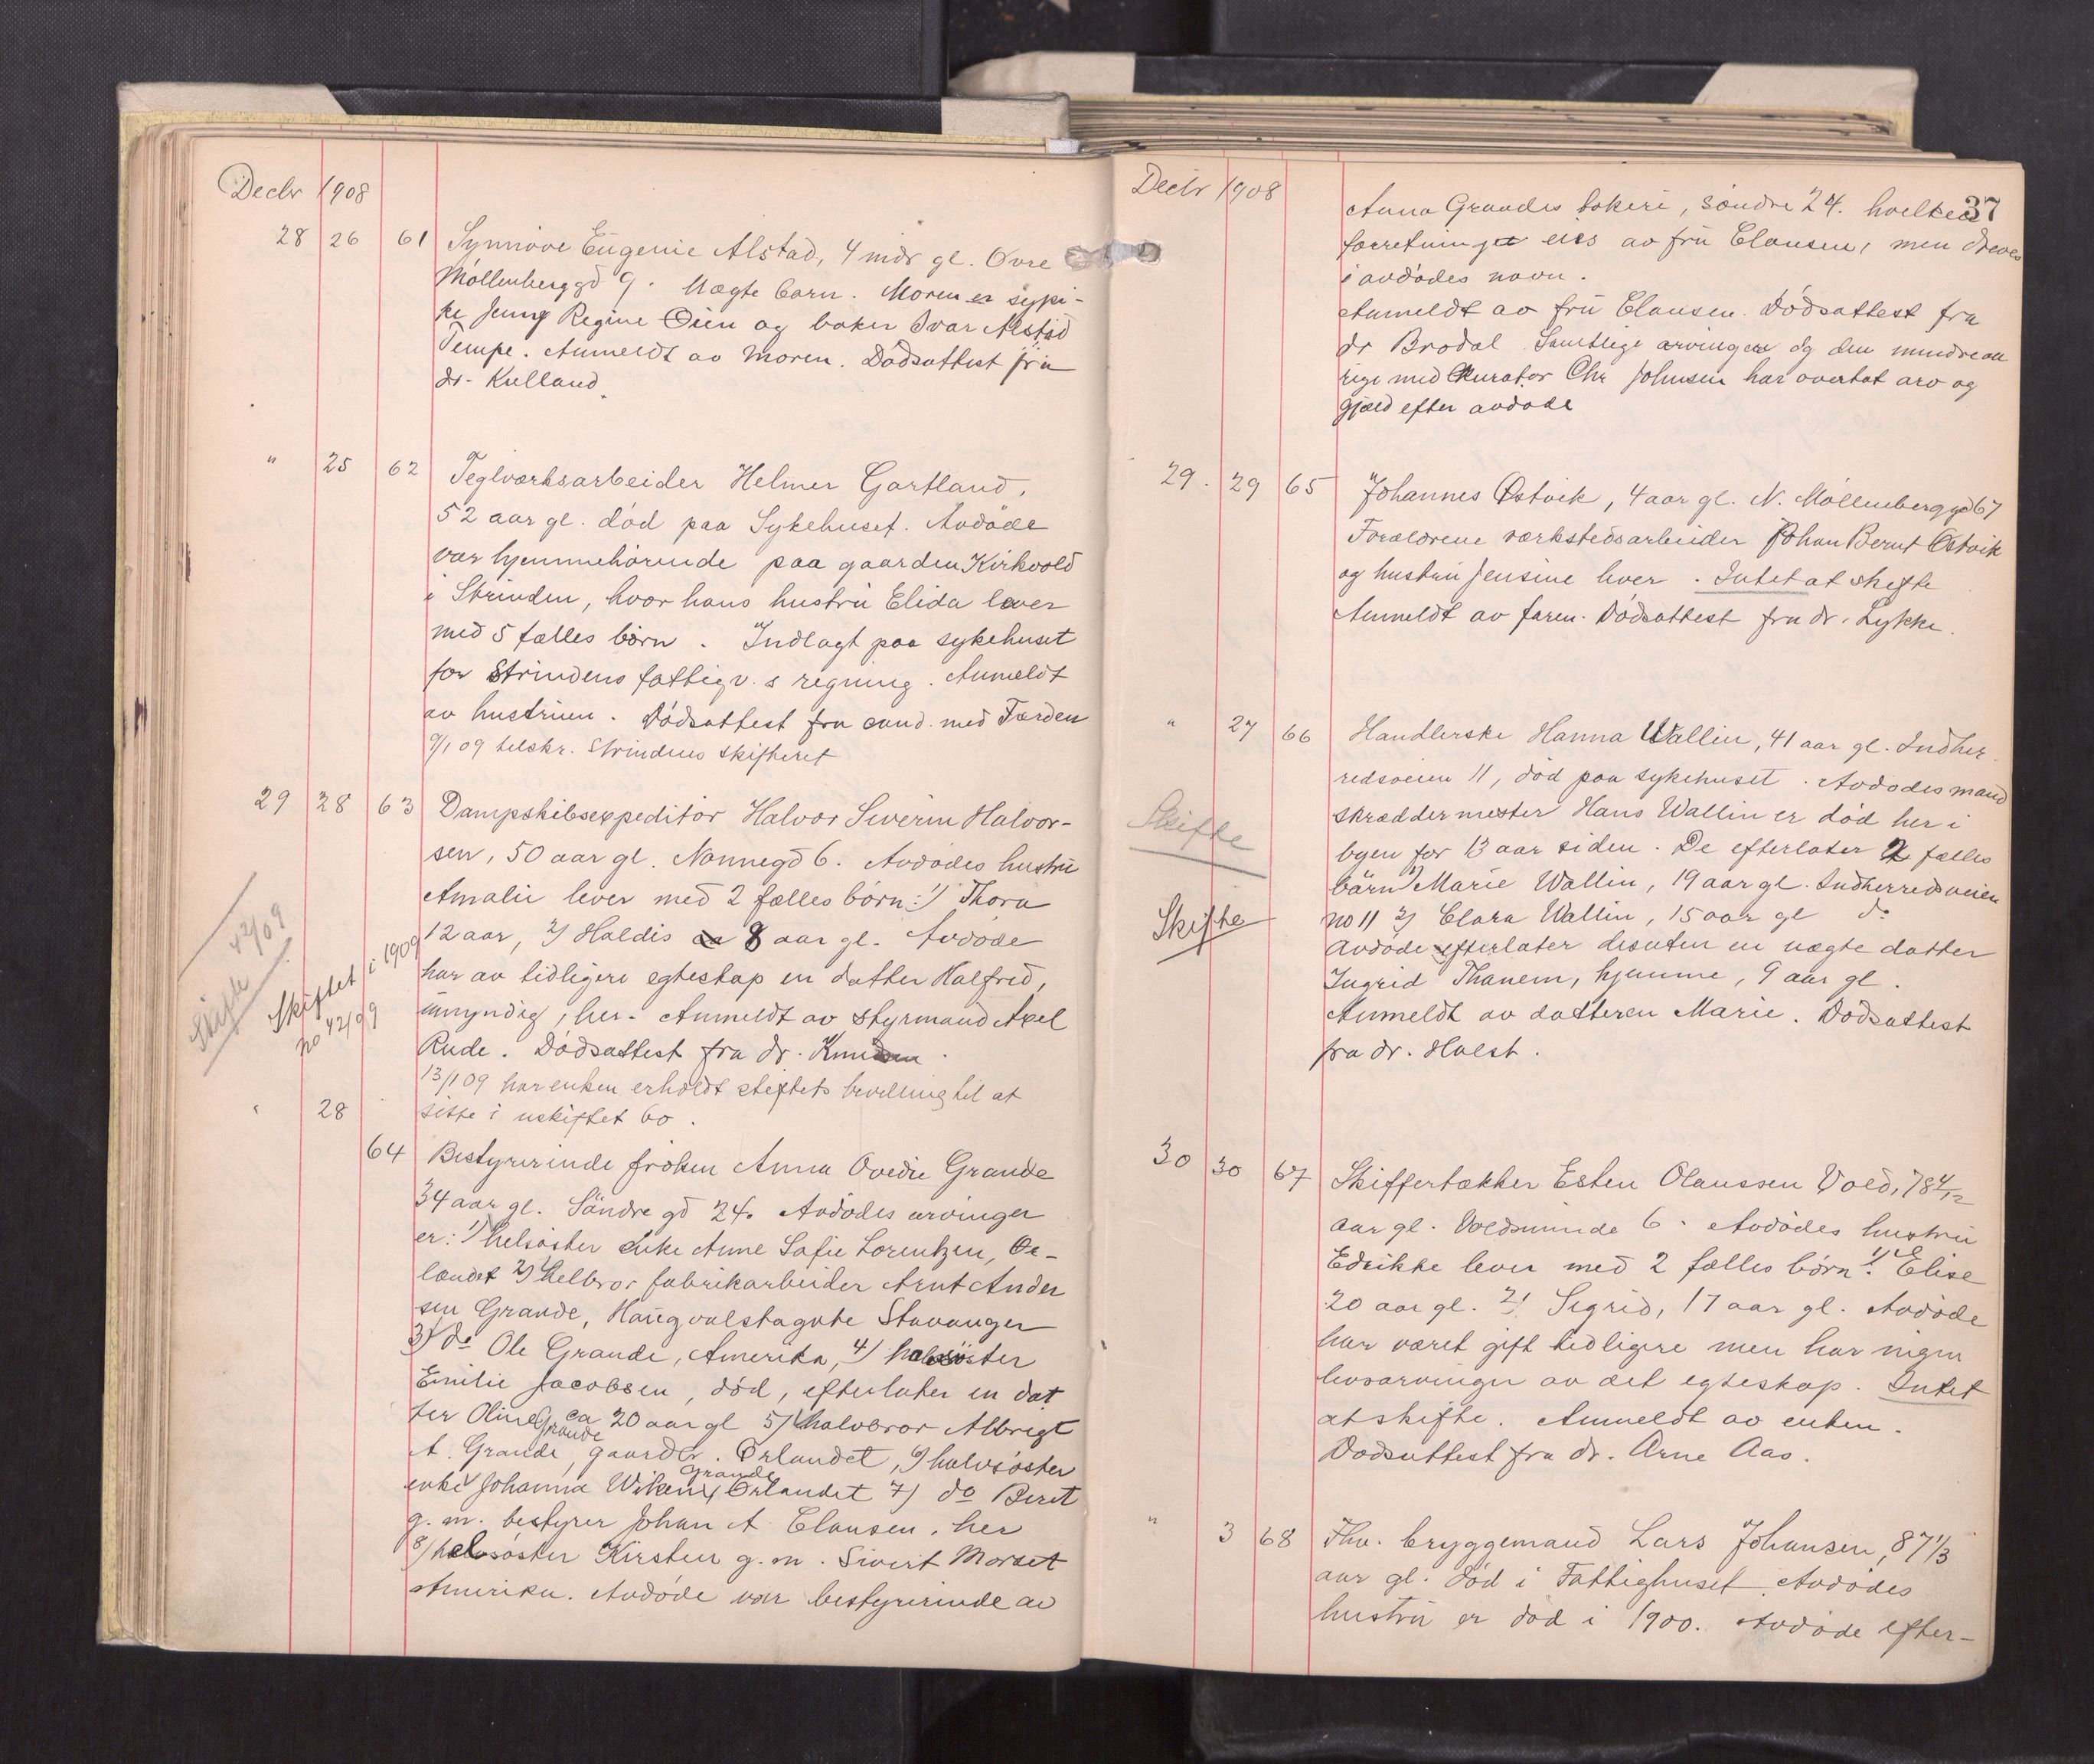 Decbr 1908
28 26 61 Synnøve Eugenie Alstad, 4 mdr gl. Øvre
Møllenberggd 9. Uægte barn. Moren er sypi-
ke Jenny Regine Øien og baker Ivar Alstad
Tempe. Anmeldt av moren. Dødsattest fra
dr. Kulland.
" 25 62 Teglværksarbeider Helmer Gartland,
52 aar gl. død paa Sykehuset. Avdøde
var hjemmehørende paa gaarden Kirkvold
i Strinden, hvor hans hustru Elida lever
med 5 fælles børn. Indlagt paa sykehuset
for Strindens fattigv.s regning. Anmeldt
av hustruen. Dødsattest fra cand. med Færden
9/1 09 tilskr. Strindens skifteret
29 28 63 Dampskibsexpeditør Halvor Severin Halvor-
sen, 50 aar gl. Nonnegd 6. Avdødes hustru
Amalie lever med 2 fælles børn: 1) Thora
12 aar, 2) Haldis 8 aar gl. Avdøde
har av tidligere egteskap en datter Halfrid,
umyndig, her. Anmeldt av styrmand Axel
Rude. Dødsattest fra dr. Knudsen.
13/1 09 har enken erholdt skiftets bevilling til at
sitte i uskiftet bo.
Skifte 42/09
Skiftet i 1909
no 42/09
" 28
64 Bestyrerinde frøken Anna Ovedie Grande
34 aar gl. Søndre gd 24. Avdødes arvinger
er: 1) helsøster enke Anne Sofie Lorentzen, Ør-
landet 2) helbror fabrikarbeider Arnt Ander
sen Grande, Haugvalstagate Stavanger
3) do Ole Grande, Amerika, 4) halvsøster
Emilie Jacobsen, død, efterlater en dat
ter Oline Grande ca 20 aar gl 5) halvbror Albrigt
A. Grande, gaardbr. Ørlandet, 6) halvsøster
enke Johanna Wiken, Grande Ørlandet 7) do Beret
g. m. bestyrer Johan A. Clausen, her
8) halvsøster Kirsten g. m. Sivert Morset
Amerika. Avdøde var bestyrerinde av
Decbr 1908
37
Anna Grandes bakeri, søndre 24. hvilken
forretning eies av fru Clausen, men dreves
i avdødes navn.
Anmeldt av fru Clausen. Dødsattest fra
dr Brodal. Samtlige arvinger og den mindreaa
rige med Kurator Chr Johnsen har overtat arv og
gjæld efter avdøde
29. 29 65 Johannes Østvik, 4 aar gl. N. Møllenberggd 67
Forældrene værkstedsarbeider Johan Bernt Østvik
og hustru Jensine lever. Intet at skifte
Anmeldt av faren. Dødsattest fra dr. Lykke.
" 27 66 Handlerske Hanna Wallin, 41 aar gl. Indher
redsveien 11, død paa sykehuset. Avdødes mand
skræddermester Hans Wallin er død her i
byen for 13 aar siden. De efterlater 2 fælles
børn 1) Marie Wallin, 19 aar gl. Indherredsveien
no 11 2) Clara Wallin, 15 aar gl do
Avdøde efterlater desuten en uægte datter
Ingrid Thanem, hjemme, 9 aar gl.
Anmeldt av datteren Marie. Dødsattest
fra dr. Holst.
Skifte
Skifte
30 30 67 Skiffertækker Esten Olaussen Vold, 78 4/12
aar gl. Voldsminde 6. Avdødes hustru
Edrikke lever med 2 fælles børn: 1) Elise
20 aar gl. 2) Sigrid, 17 aar gl. Avdøde
har været gift tidligere men har ingen
livsarvinger av det egteskap. Intet
at skifte. Anmeldt av enken.
Dødsattest fra dr. Arne Aas.
" 3 68 Fhv. bryggemand Lars Johansen, 87 1/3
aar gl. død i Fattighuset. Avdødes
hustru er død i 1900. Avdøde efter-